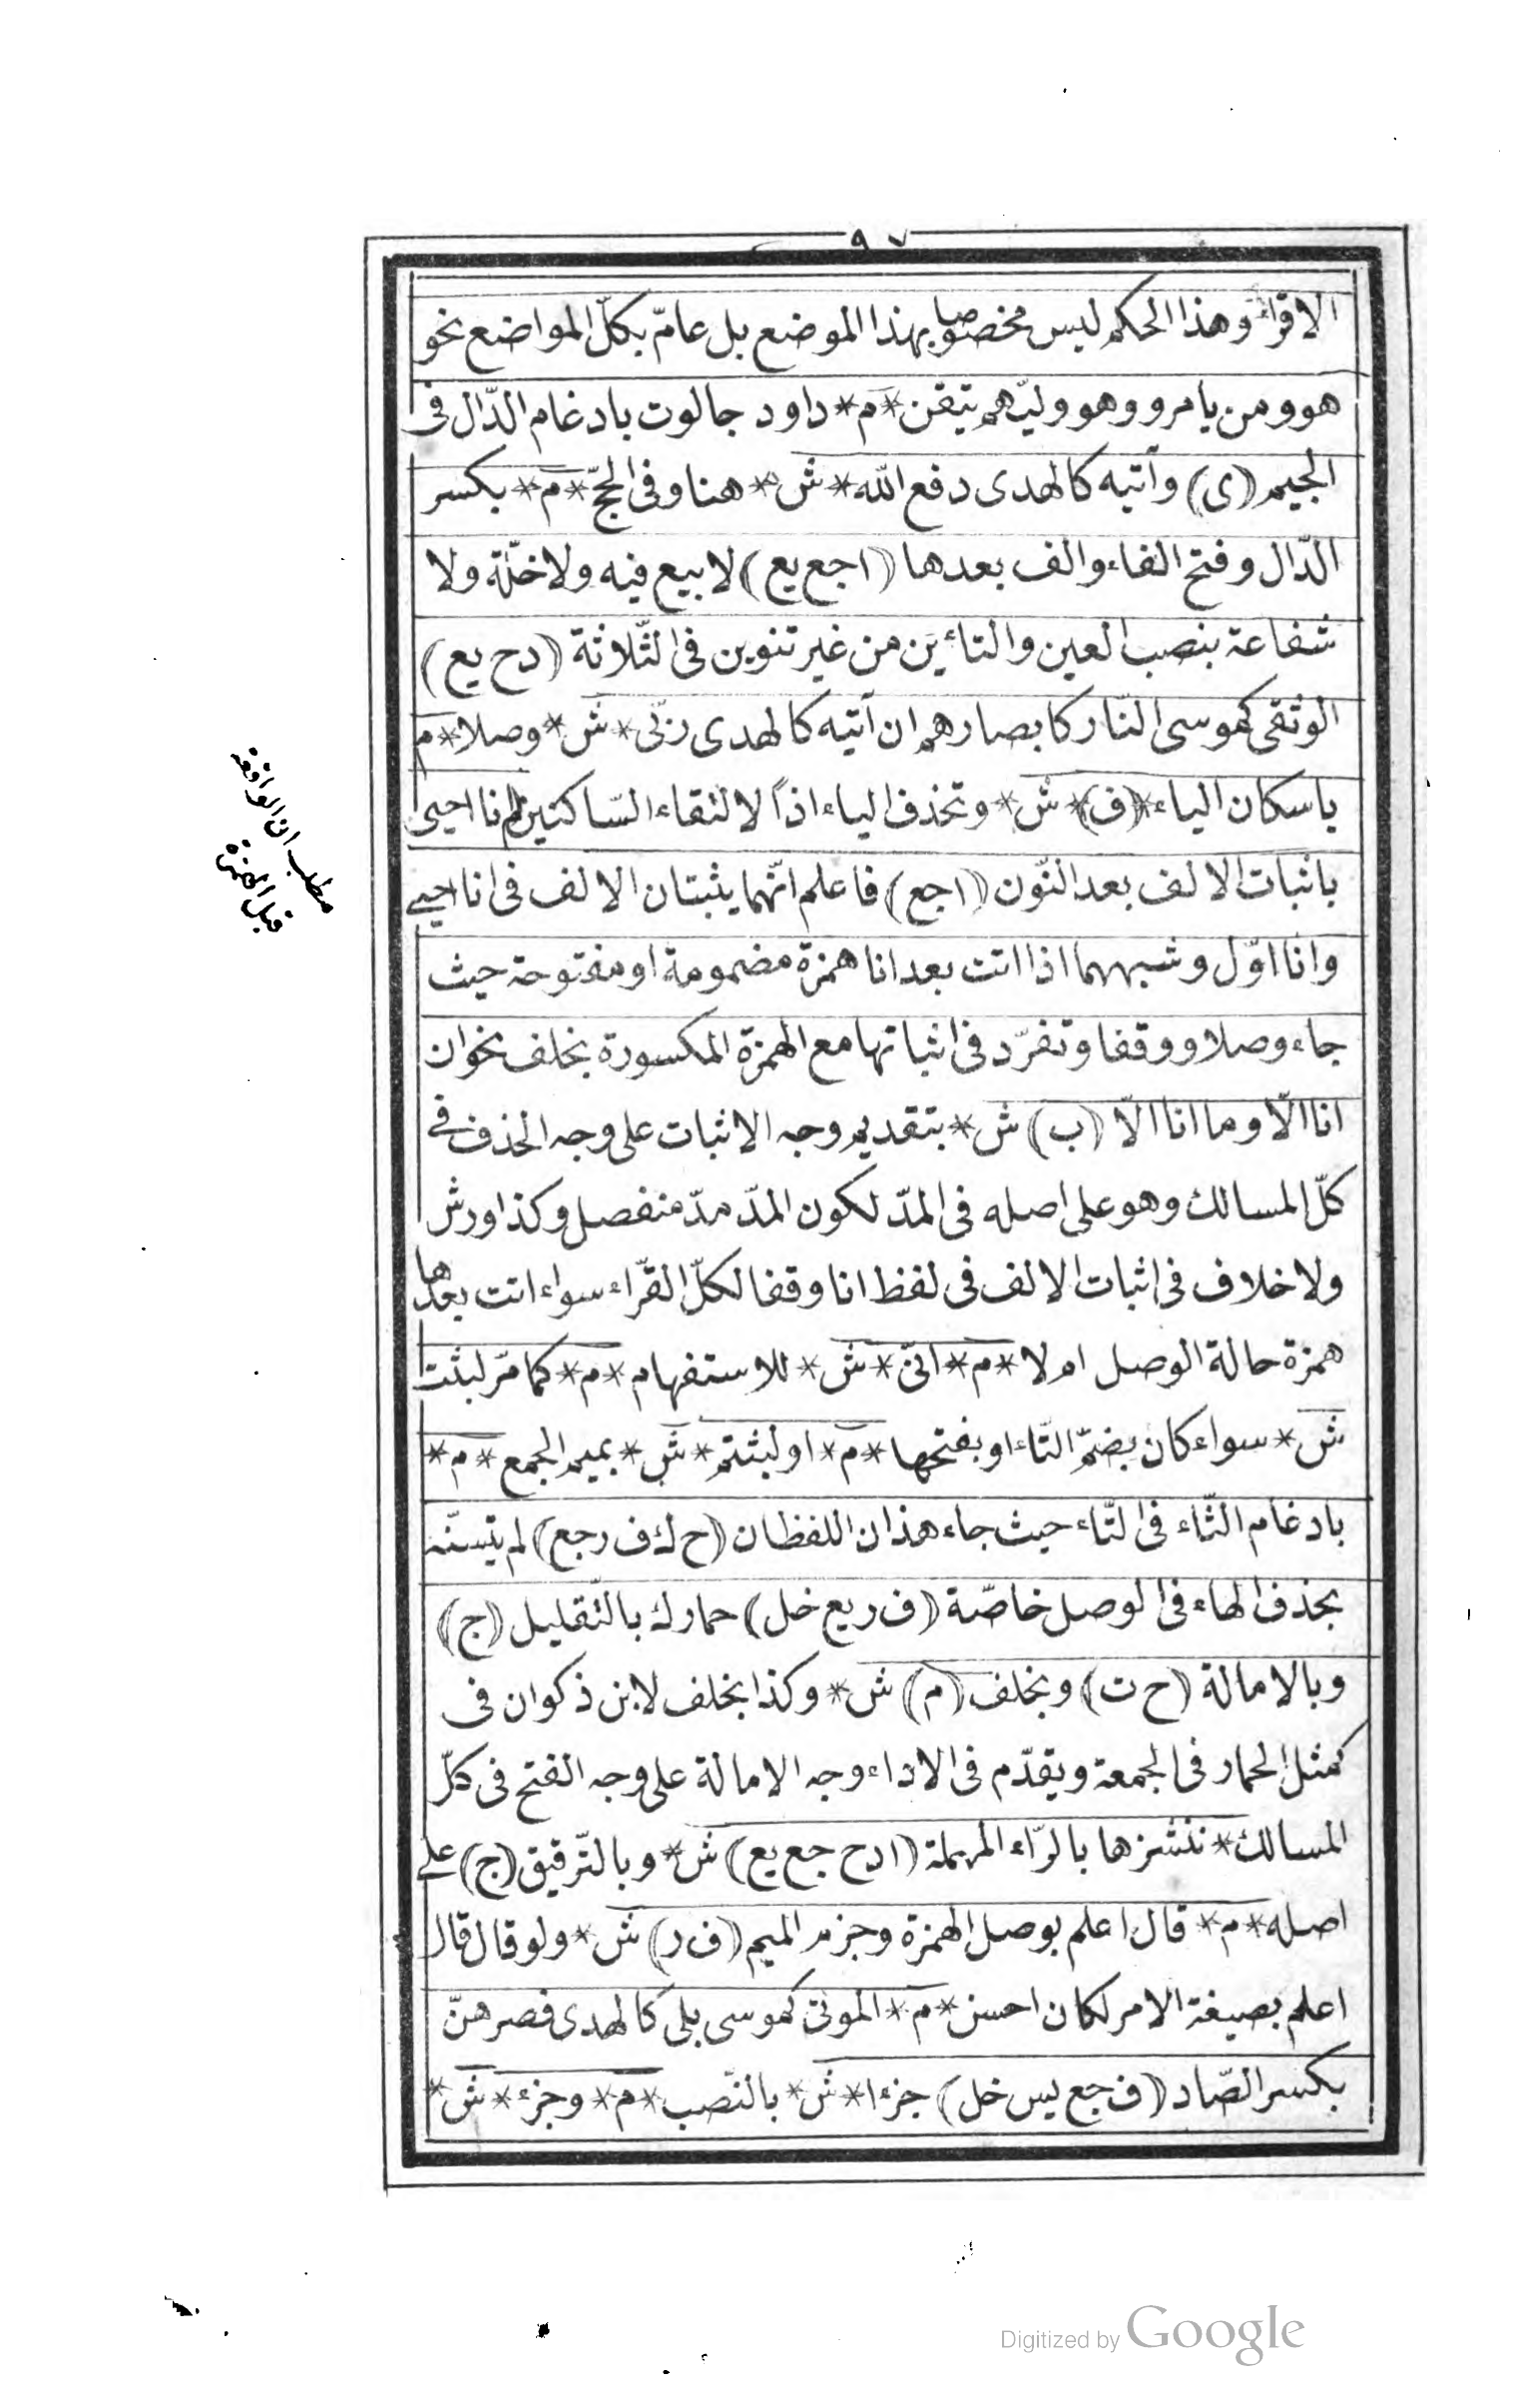 ٩٧
الاقراء وهذا الحكم ليس مخصوصا بهذا الموضع بل عامّ بكلّ المواضع نحو
هو ومن يامر و وهو وليّهم تيقن * م * داود جالوت بادغام الدّال فى
الجيم (ى) وآتيه كالهدى دفع الله * ش * هنا وفى الحجّ * م * بكسر
الدّال وفتح الفاء والف بعدها (اجع يع) لا بيع فيه ولا خلّة ولا
شفاعة بنصب العين والتائين من غير تنوين فى الثّلاثة (دح يع)
الوثقى كموسى النّار كابصارهم ان آتيه كالهدى ربّى * ش * وصلا * م
باسكان الياء * (ف) * ش * وتحذف الياء اذاً لالتقاء السّاكنين * م انا احيى
باثبات الالف بعد النّون (اجع) فاعلم انّهما يثبتان الالف فى انا احيى
وانا اوّل وشبههما اذا اتت بعد انا همزة مضمومة او مفتوحة حيث
جاء وصلا ووقفا وتفرّد فى اثباتها مع الهمزة المكسورة بخلف نحو ان
انا الّا وما انا الّا (ب) ش * بتقديم وجه الاثبات على وجه الحذف فى
كلّ المسالك وهو على اصله فى المدّ لكون المدّ مدّ منفصل وكذا ورش
ولا خلاف فى اثبات الالف فى لفظ انا وقفا لكلّ القرّاء سواء اتت بعدها
همزة حالة الوصل ام لا * م * انىّ * ش * للاستفهام * م * كما مرّ لبثت
ش * سواء كان بضمّ التّاء او بفتحها * م * او لبثتم * ش * بميم الجمع * م *
بادغام الثّاء فى التّاء حيث جاء هذان اللفظان (ح ك ف ر جع) لم يتسنّه
بحذف الهاء فى الوصل خاصّة (ف ر يع خل) حمارك بالتّقليل (ج)
وبالامالة (ح ت) وبخلف (م) ش * وكذا بخلف لابن ذكوان فى
كمثل الحمار فى الجمعة ويقدّم فى الاداء وجه الامالة على وجه الفتح فى كلّ
المسالك * ننشزها بالرّاء المهملة (ا د ح جع يع) ش * وبالتّرقيق (ج) على
اصله * م * قال اعلم بوصل الهمزة وجزم الميم (ف ر) ش * ولو قال قال
اعلم بصيغة الامر لكان احسن * م * الموتى كموسى بلى كالهدى فصرهنّ
بكسر الصّاد (ف جع يس خل) جزءا * ش * بالنّصب * م * وجزء * ش *
مطلب ان الواقعة
قبل الهمزة
Digitized by Google